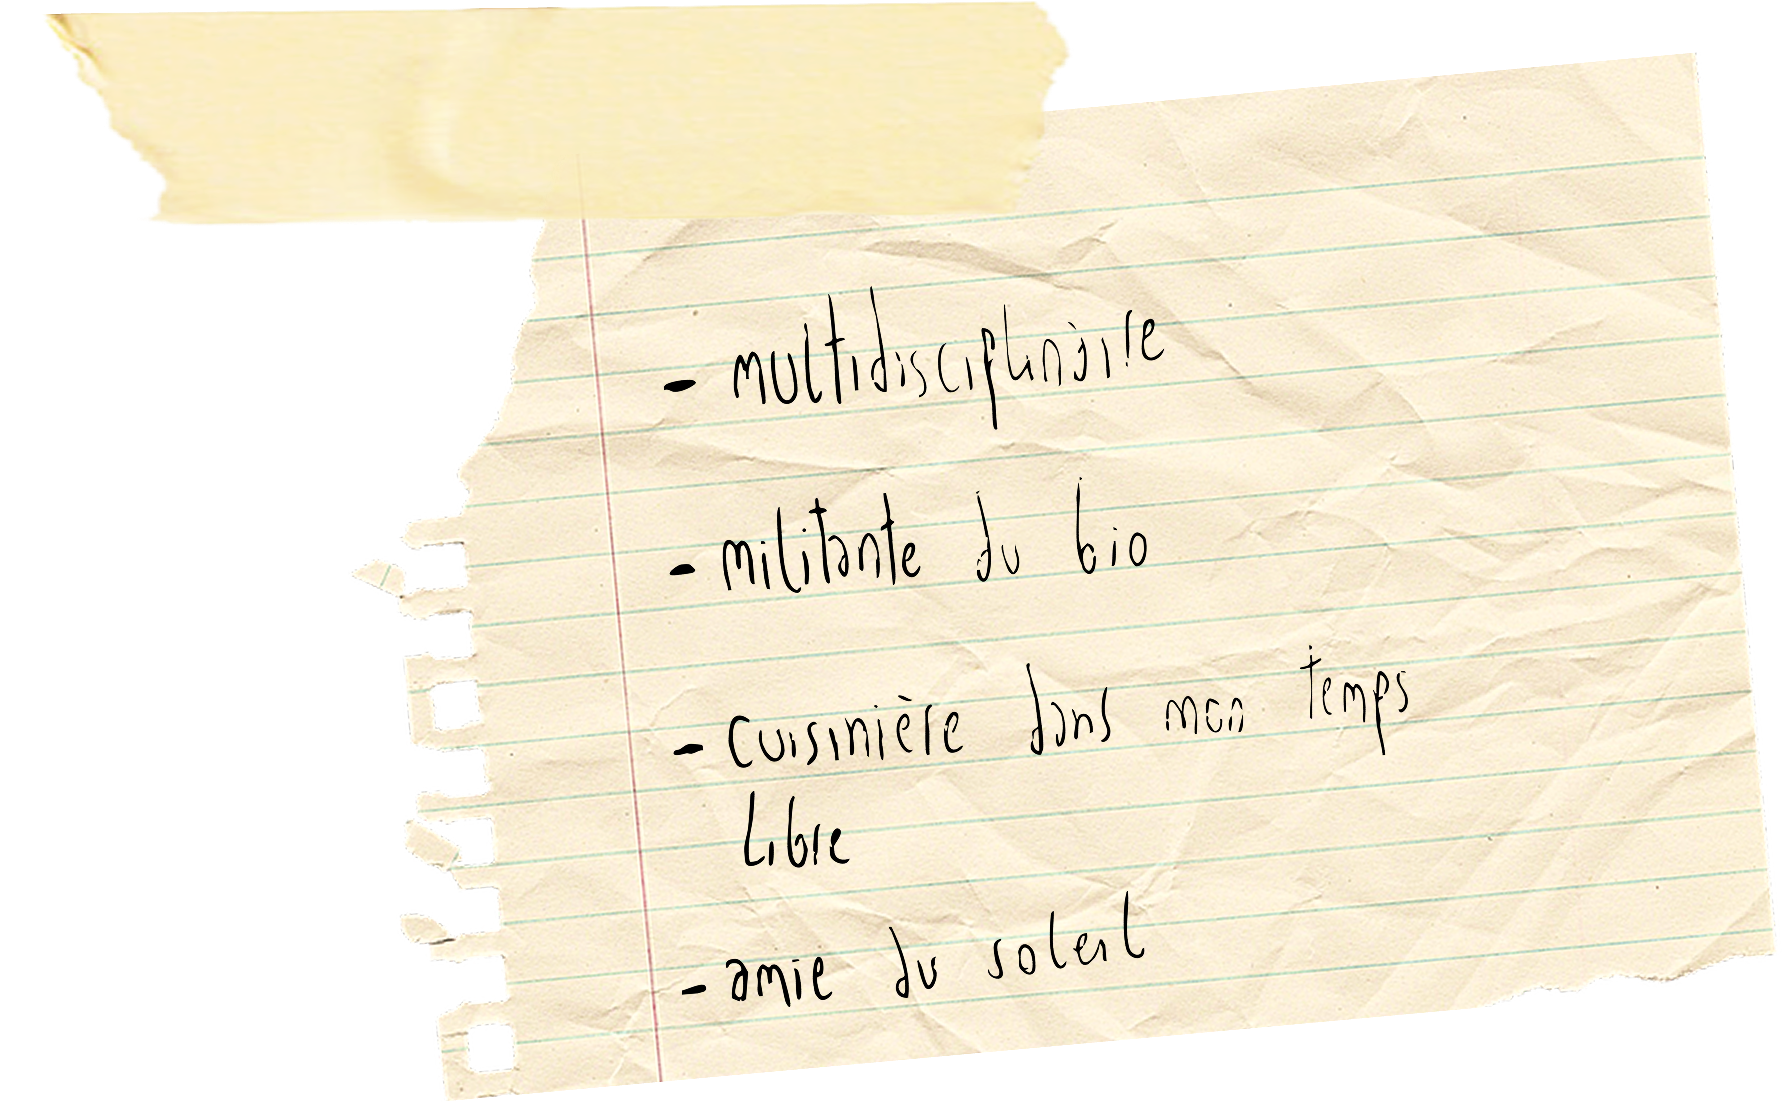 - multidisciplinaire
- militante du bio
- cuisinière dans mon temps
libre
- amie du soleil